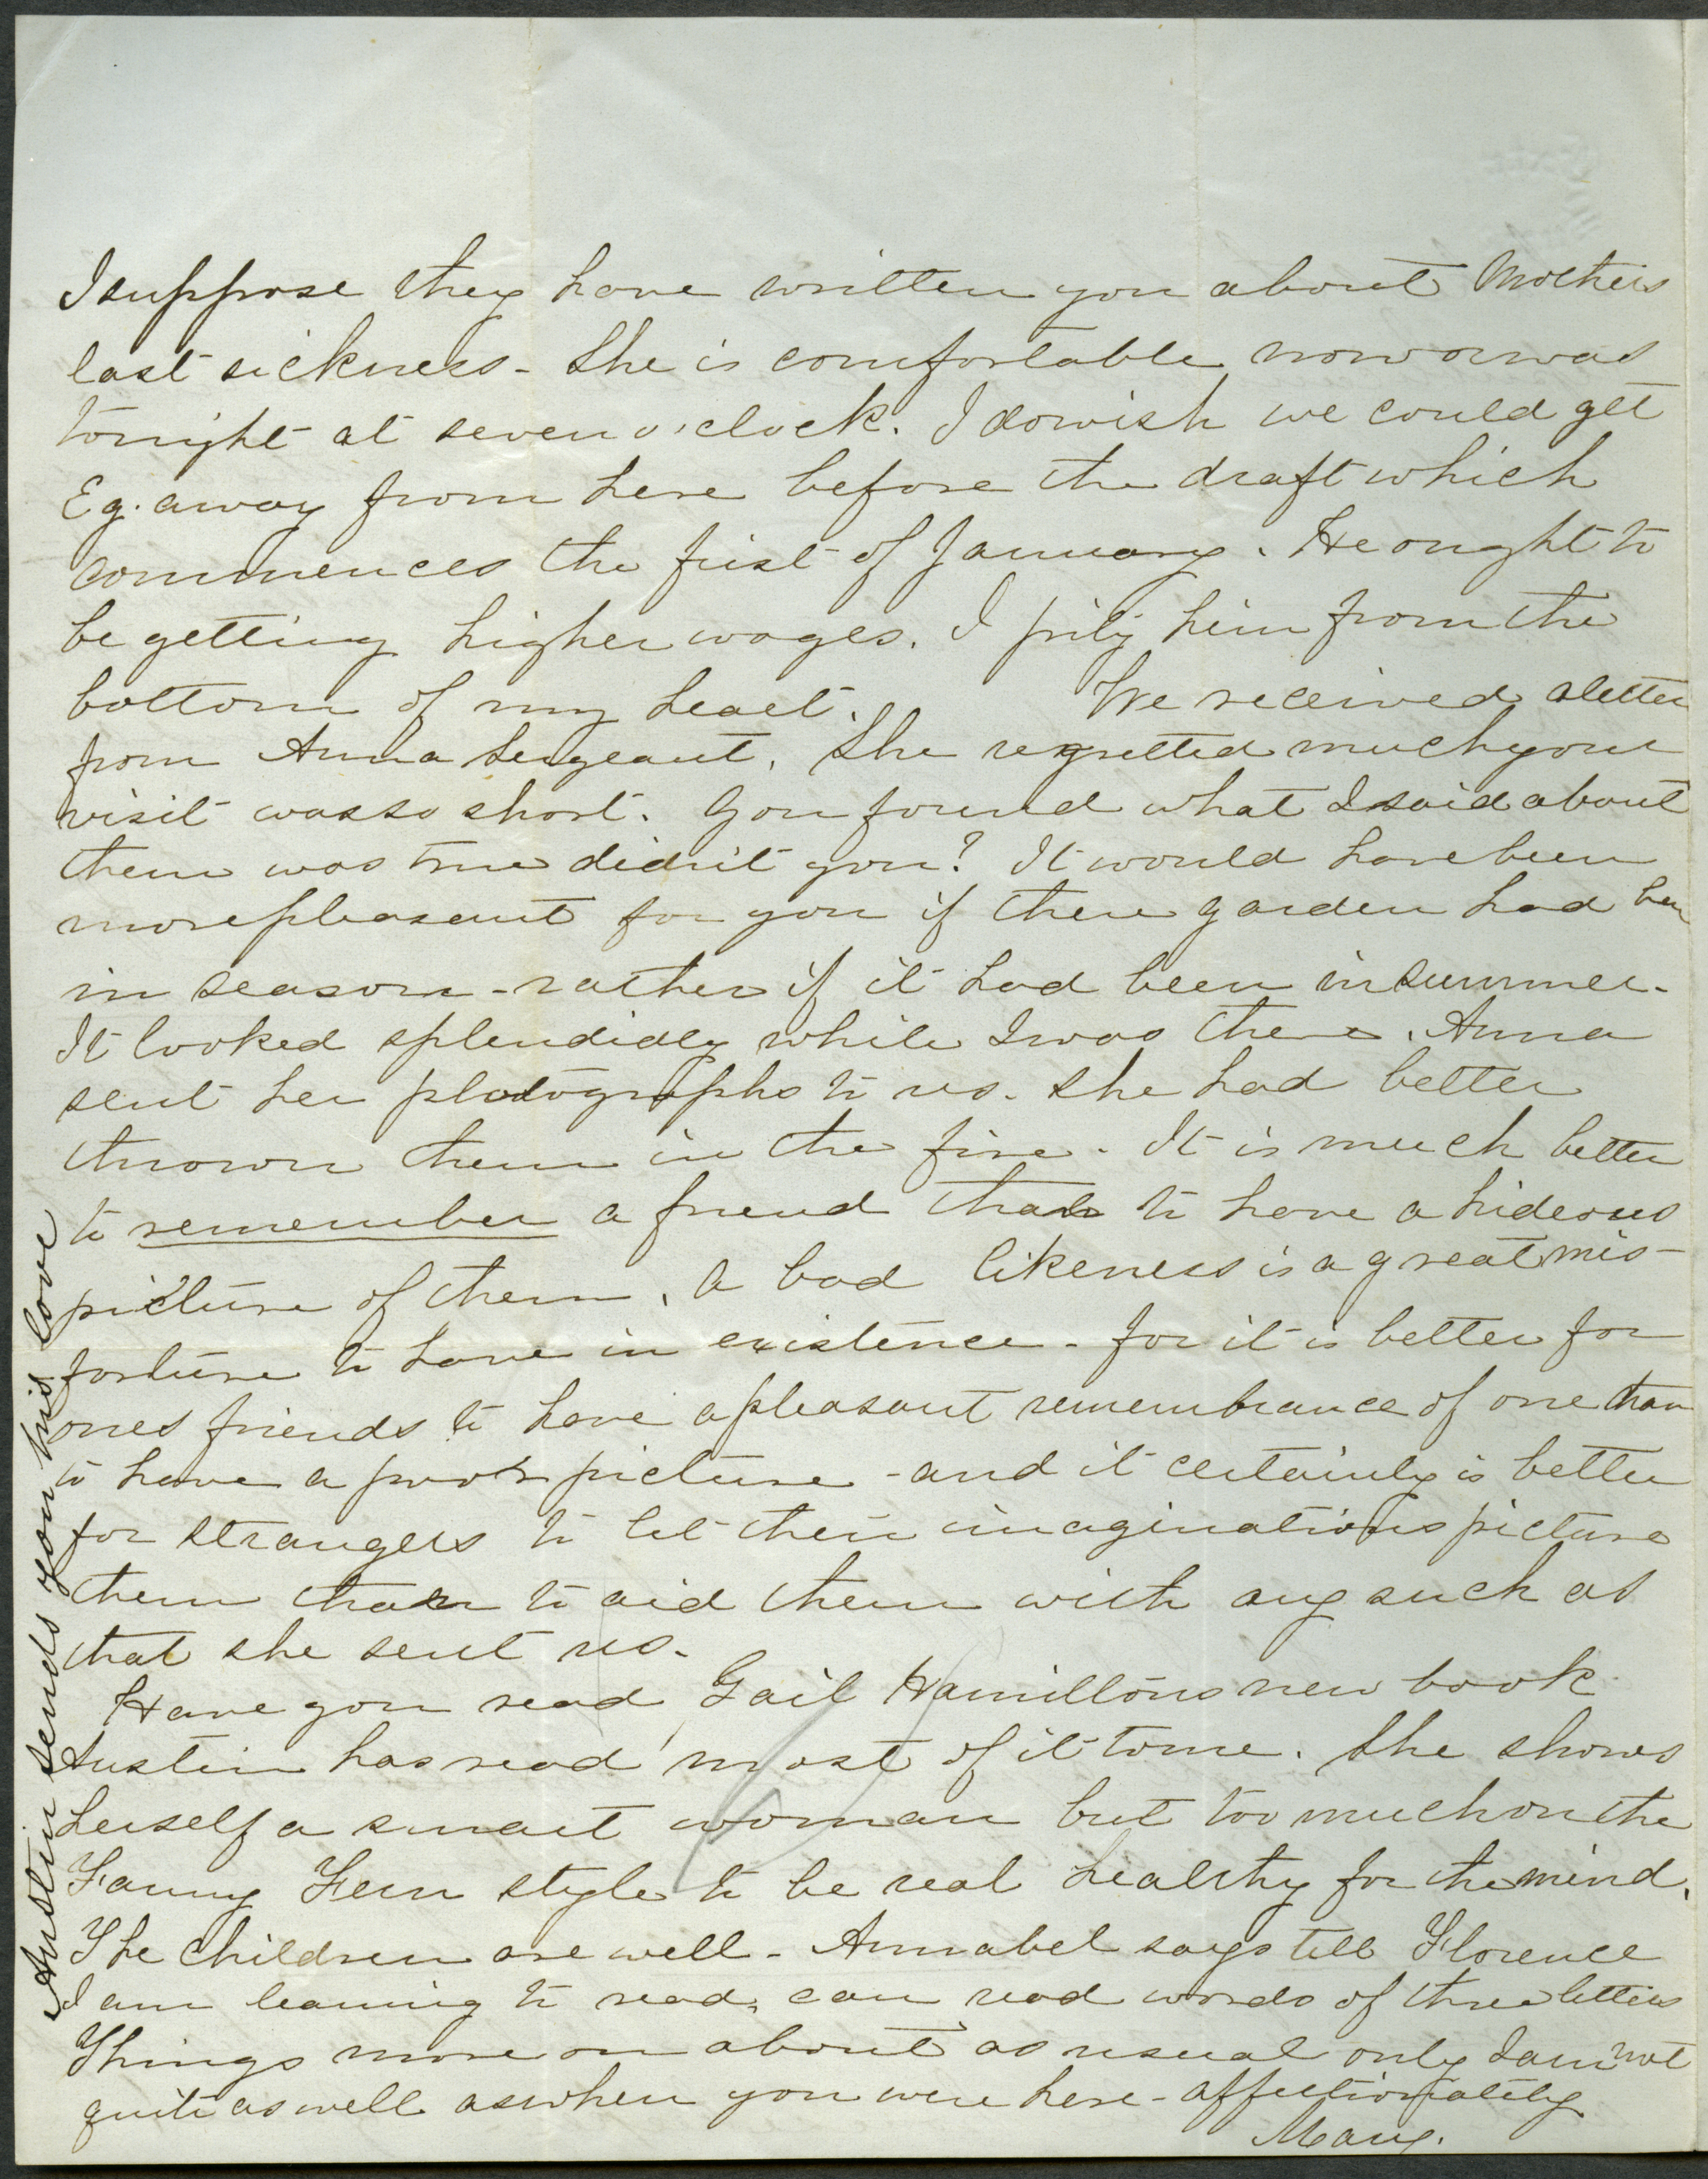 I suppose they have written you about Mothers
last sickness - She is comfortable now or was
tonight at seven o'clock. I do wish we could get
Eg. away from here before the draft which
commences the first of January. He ought to
be getting higher wages. I pity him from the
bottom of my heart. We received a letter
from Anna Sergeant. She regretted much your
visit was so short. You found what I said about
them was true didn't you? It would have been
more pleasant for you if there garden had been
in season - rather if it had been in summer.
It looked splendidly while I was there. Anna
sent her photographs to us. She had better
thrown them in the fire. It is much better
to remember a friend than to have a hideous
picture of them. A bad likeness is a great mis-
fortune to have in existence - for it is better for
ones friends to have a pleasant remembrance of one than
to have a poor picture - and it certainly is better
for strangers to let their imaginations picture
them than to aid them with any such as
that she sent us.
Have you read Gail Hamiltons new book
Austin has read most of it to me. She shows
herself a smart woman but too much on the
Fanny Fern style to be real healthy for the mind.
The children are well - Annabel says tell Florence
I am learning to read, can read words of three letters
Things move on about as usual only I am not
quite as well as when you were here - affectionately
Mary.
Austin sends you his love